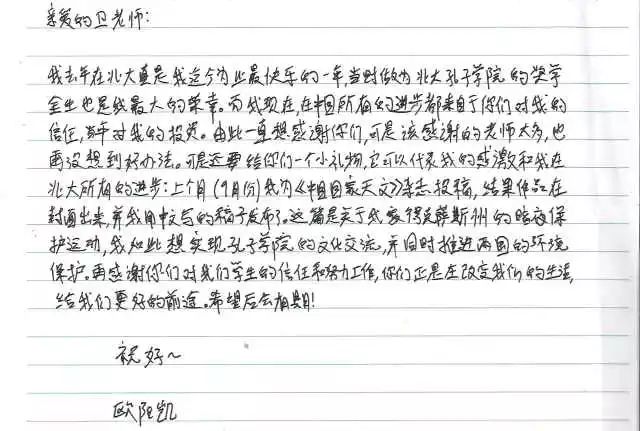 亲爱的卫老师:
我去年在北大真是我迄今为止最快乐的一年,当时做为北大孔子学院的奖学
金生也是我最大的荣幸。而我现在在中国所有的进步都来自于你们对我的
信任,当年对我的投资。由此一直想感谢你们,可是该感谢的老师太多,也
再没想到好办法。可是还要给你们一个小礼物,它可以代表我的感激和我在
北大所有的进步:上个月(9月份)我为《中国国家天文》杂志投稿,结果作品在
封面出来,并我用中文写的稿子发布了。这篇是关于我家得克萨斯州的暗夜保
护运动,我如此想实现孔子学院的文化交流,并同时推进两国的环境
保护。再感谢你们对我们学生的信任和努力工作,你们正是在改变我们的生活,
给我们更好的前途。希望后会有期!
祝好~
欧阳凯